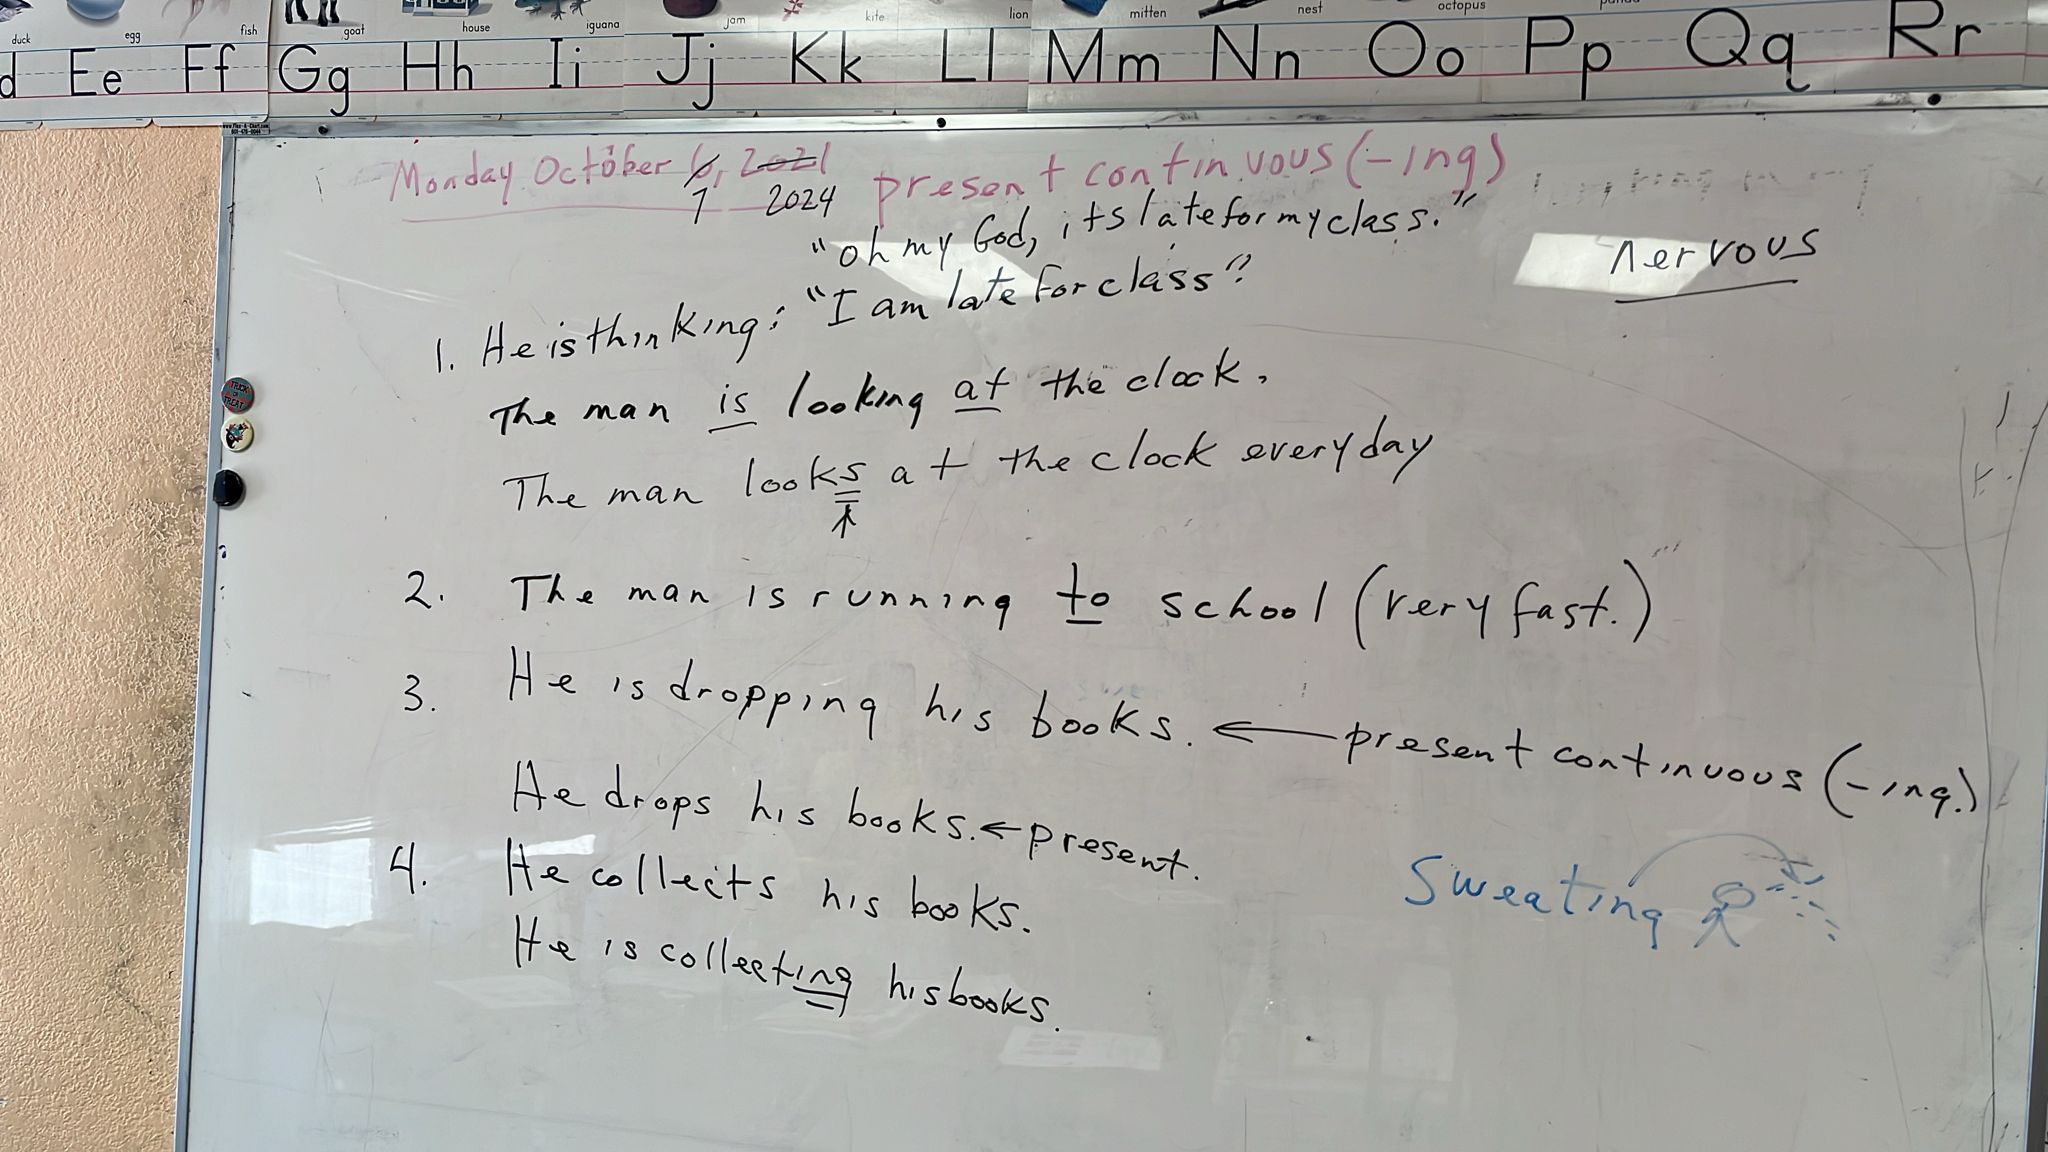 duck egg fish goat house iguana jam kite lion mitten nest octopus
d Ee Ff Gg Hh Ii Jj Kk Ll Mm Nn Oo Pp Qq Rr
Monday October 6, 2021 present continuous (-ing)
7 2024
"oh my God, its late for my class."
nervous
1. He is thinking: "I am late for class"?
The man is looking at the clock.
The man looks at the clock every day
2. The man is running to school (very fast.)
3. He is dropping his books. ← present continuous (-ing.)
He drops his books. ← present.
4. He collects his books.
Sweating
He is collecting his books.
TRICK OR TREAT